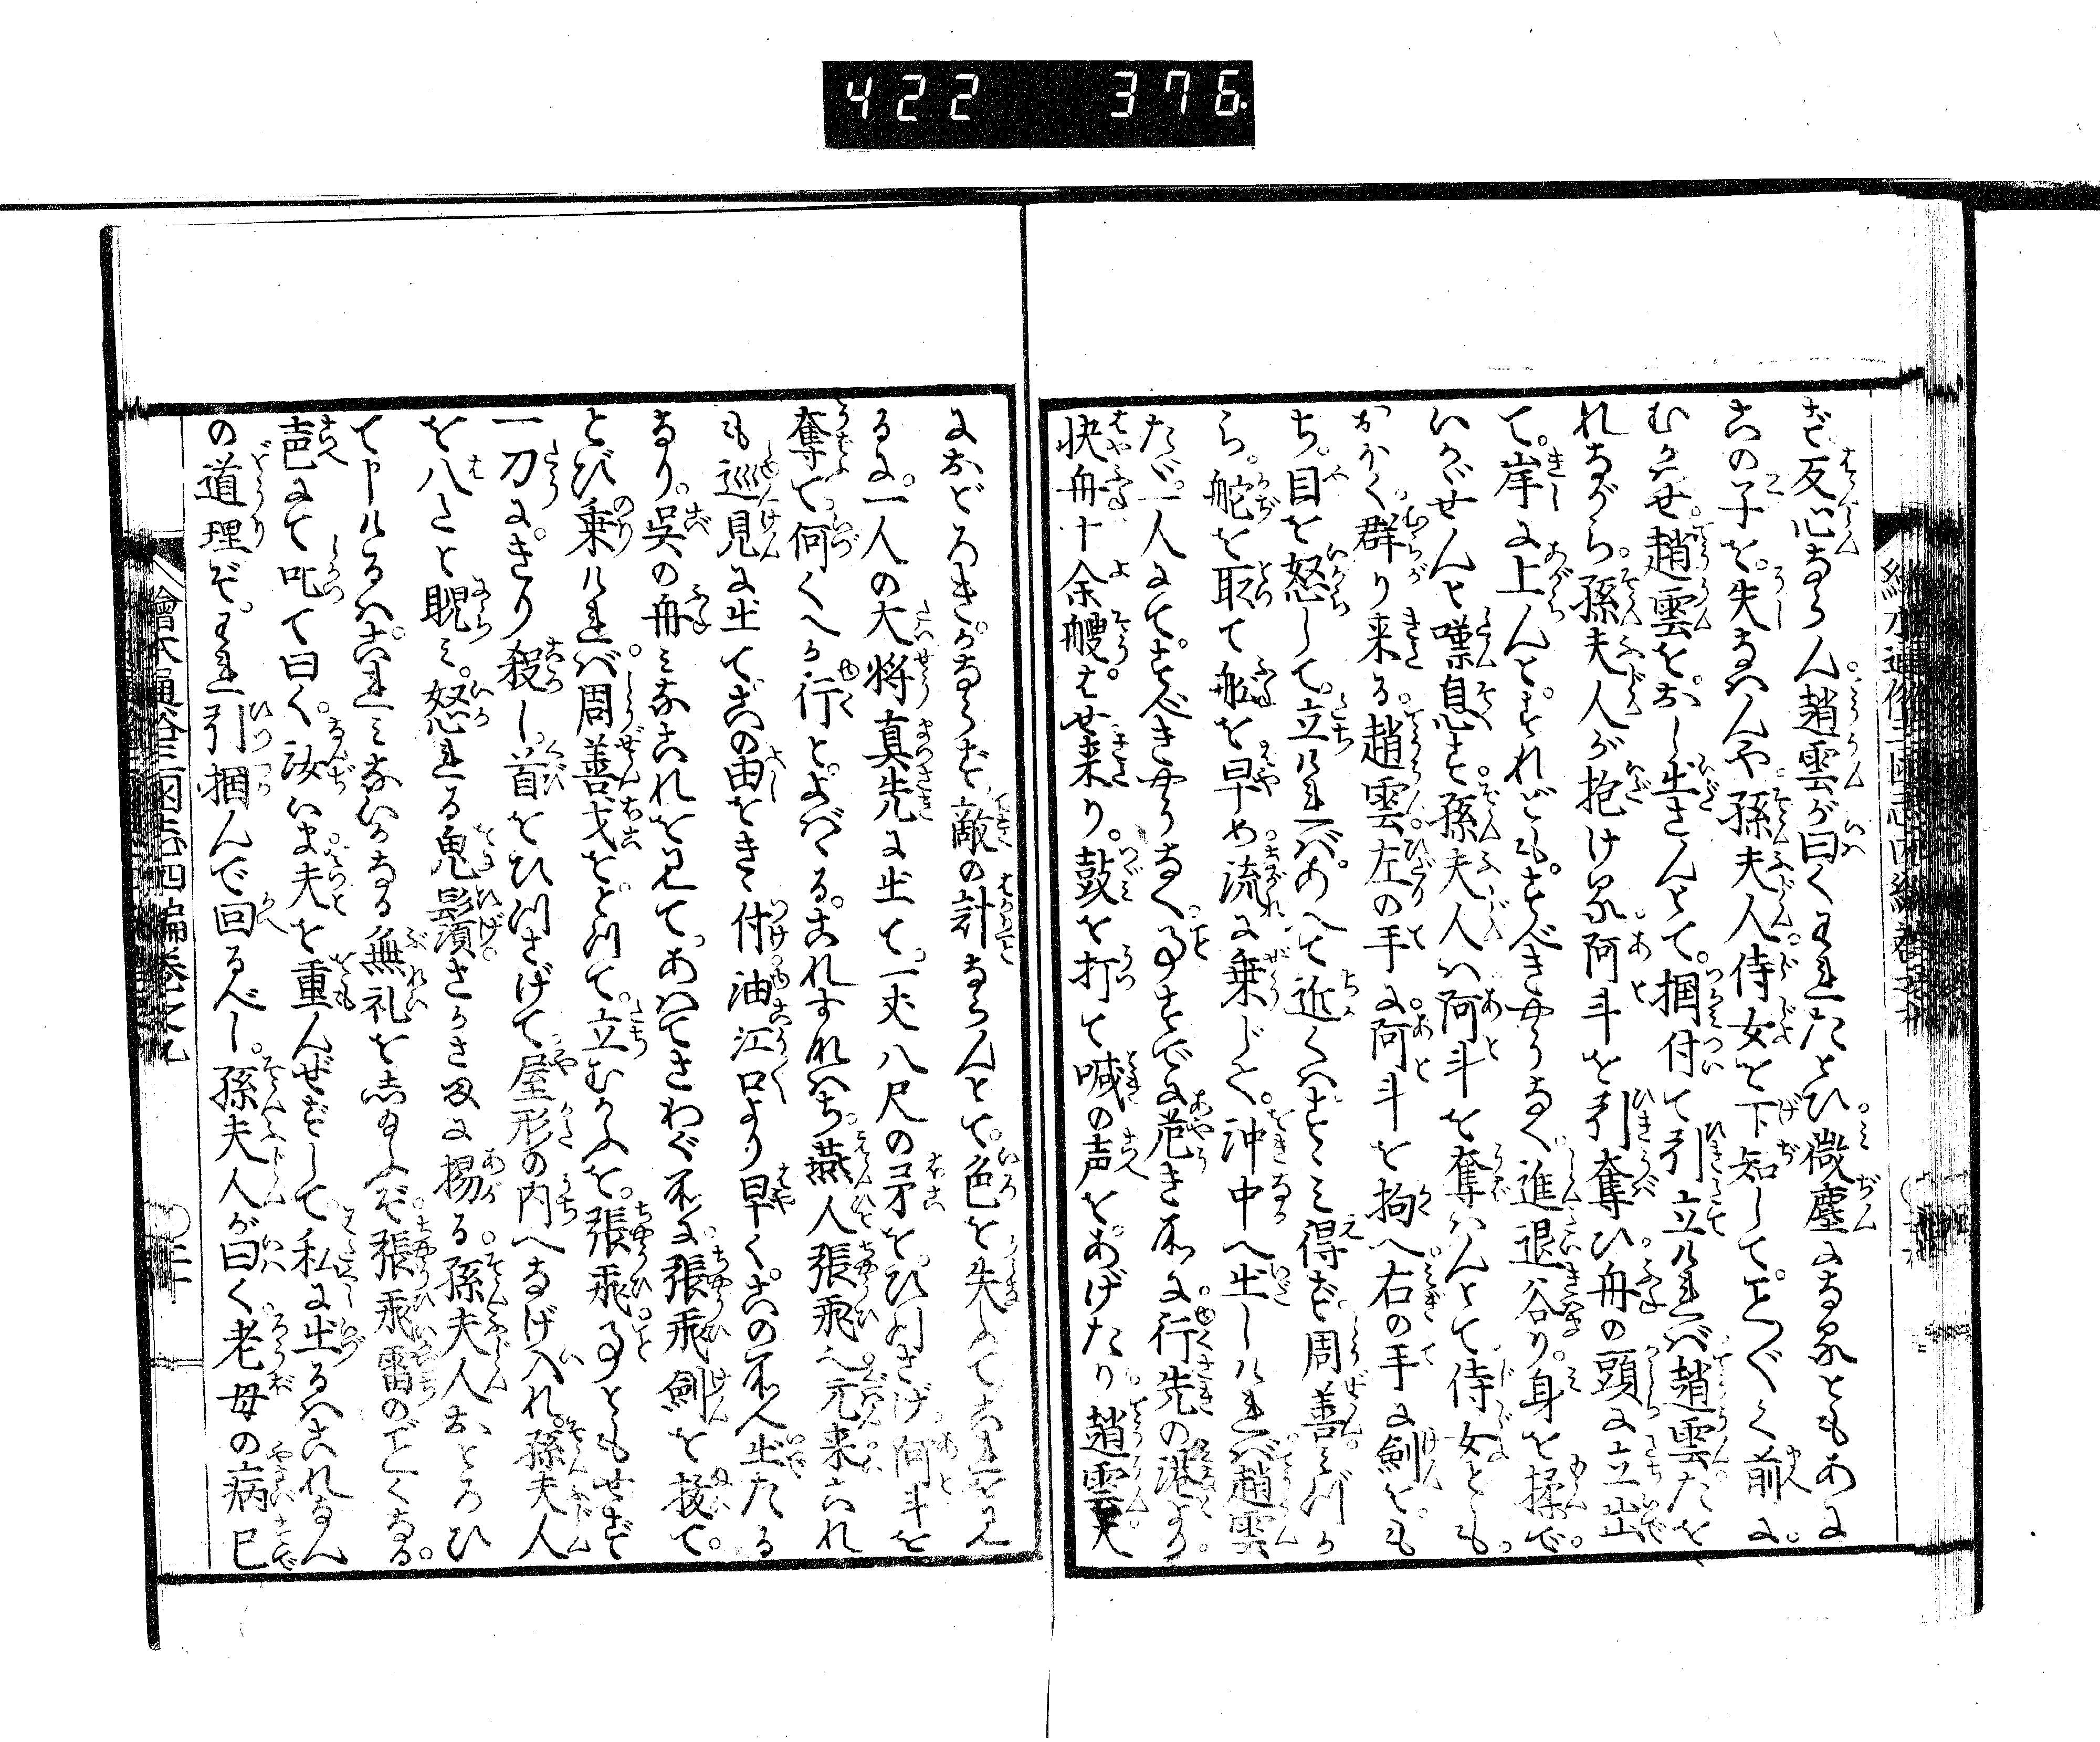 422 376.
ざ反心ならん趙雲が曰くわれたとひ微塵になるともあに
この子を失なはんや孫夫人侍女を下知してことごとく前に
むかせ趙雲をおし出さんとて。掴付て引立ければ趙雲たを
れながら孫夫人が抱ける阿斗を引奪ひ舟の頭に立出
て。岸に上んとすれども。すべきやうなく進退谷り。身を揉で
いかゞせんと嘆息す孫夫人ハ阿斗を奪ハんとて侍女とも
おほく群り来る。趙雲左の手に阿斗を拘へ右の手に剣をも
ち。目を怒して。立ければ。あへて近くハすゝみ得ず周善みづか
ら。舵を取て舩を早め流に乗じて。沖中へ出しければ趙雲
たゞ一人にて。すべきやうなく。事すでに危き所に行先の港より。
快舟十余艘はせ来り。鼓を打て喊の声を。あげたり趙雲大
におどろき。かならず敵の計ならんとて。色を失ふてこれをみ
るに。一人の大将真先に出て。一丈八尺の矛を。ひつさげ阿斗を
奪て何くへか行と。よばゝる。これすなハち燕人張飛也元来これ
も巡見に出てこの由をきゝ付油江口より早くこの所へ出たる
なり。呉の舟みなこれを見て。あハてさわぐ所に張飛剣を抜て。
とび乗ければ周善戈をとつて。立むかふを。張飛事ともせず
一刀に。きり殺し首をひつさげて屋形の内へなげ入れ。孫夫人
を八たと睨ミ。怒れる鬼髭鬚さかさまに揚る孫夫人おとろひ
て申けるハこれミないかなる無礼をしたまふぞ張飛雷のごとくなる。
声にて叱て曰く汝いま夫を重んぜずして。私に出るハこれなん
の道理ぞ。われ引掴んで回るべし。孫夫人が曰く老母の病已
繪本通俗三國志四編巻之九